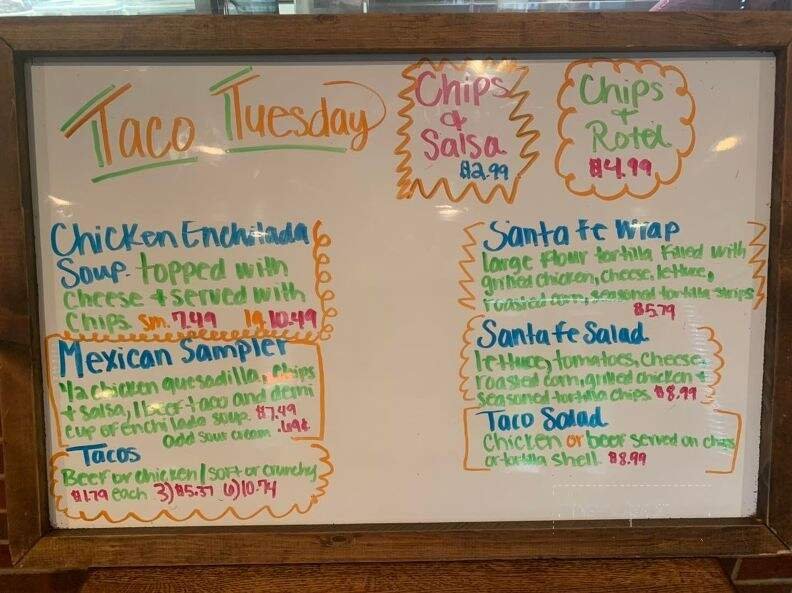 Taco Tuesday
Chips
&
Salsa
$2.99
Chips
+
Rotel
$4.99
Chicken Enchilada
Soup topped with
cheese + served with
chips. sm. 7.49 lg 10.49
Mexican Sampler
1/2 chicken quesadilla, chips
+ salsa, 1 beef taco and demi
cup of enchilada soup. $7.49
add sour cream .69¢
Tacos
Beef or chicken/soft or crunchy
$1.79 each 3)$5.37 6)10.74
Santa Fe Wrap
large flour tortilla filled with
grilled chicken, cheese, lettuce,
roasted corn, seasoned tortilla strips
$5.79
Santa Fe Salad
lettuce, tomatoes, cheese,
roasted corn, grilled chicken +
seasoned tortilla chips. $8.99
Taco Salad
Chicken or beef served on chips
or tortilla shell. $8.99